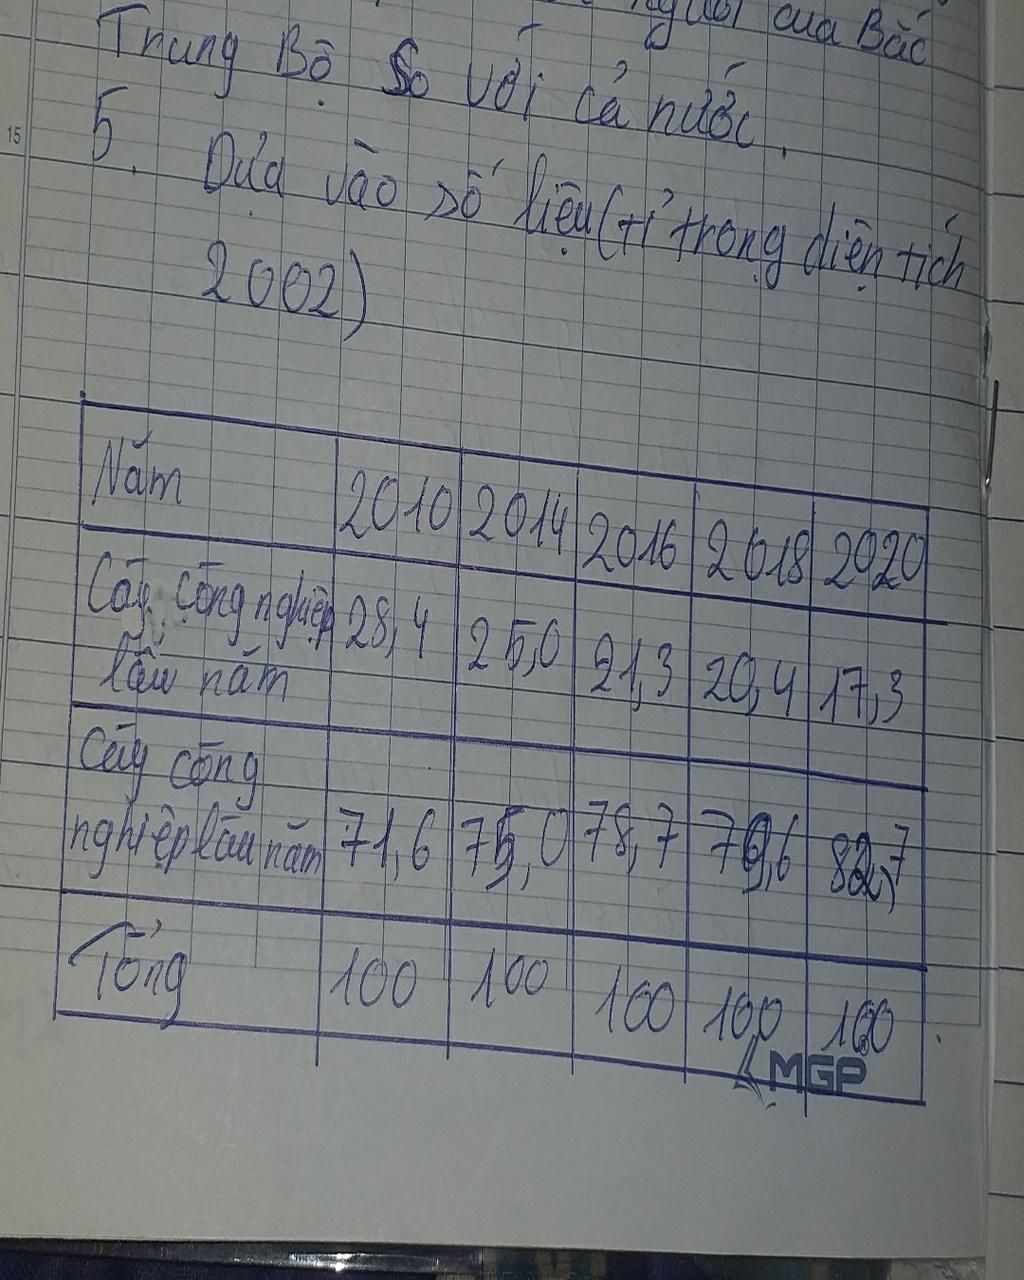 người của Bắc
Trung Bộ So với cả nước.
5. Dựa vào số liệu (tỉ trọng diện tích
2002)
Năm 2010 2014 2016 2018 2020
Cây công nghiệp 28,4 25,0 21,3 20,4 17,3
lâu năm
Cây công
nghiệp lâu năm 71,6 75,0 78,7 79,6 82,7
Tổng 100 100 100 100 100
MGP
15